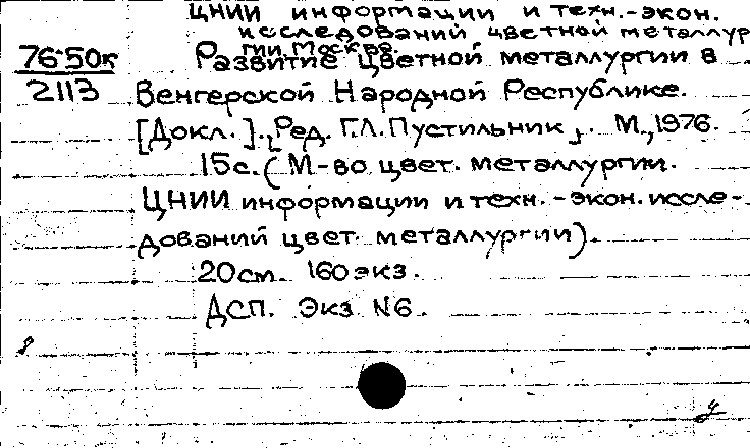 ЦНИИ информации и техн.-экон.
исследований цветной металлур
гии. Москва.
76-50к
2113
Развитие цветной металлургии в
Венгерской Народной Республике.
[Докл.]. [Ред. Г.Л. Пустильник]. М., 1976.
15с. (М-во цвет. металлургии.
ЦНИИ информации и техн.-экон. иссле-
дований цвет. металлургии).
20см. 160экз.
ДСП. Экз №6.
8
4